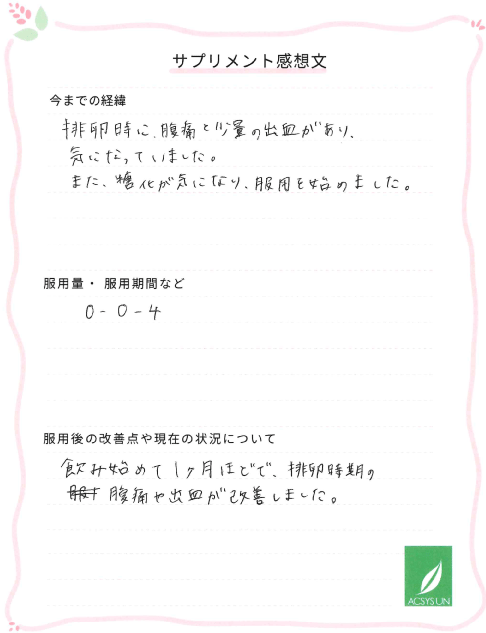 サプリメント感想文
今までの経緯
排卵時に、腹痛と少量の出血があり、
気になっていました。
また、糖化が気になり、服用を始めました。
服用量・ 服用期間など
0-0-4
服用後の改善点や現在の状況について
飲み始めて1ヶ月ほどで、排卵時期の
腹痛や出血が改善しました。
ACSYSUN